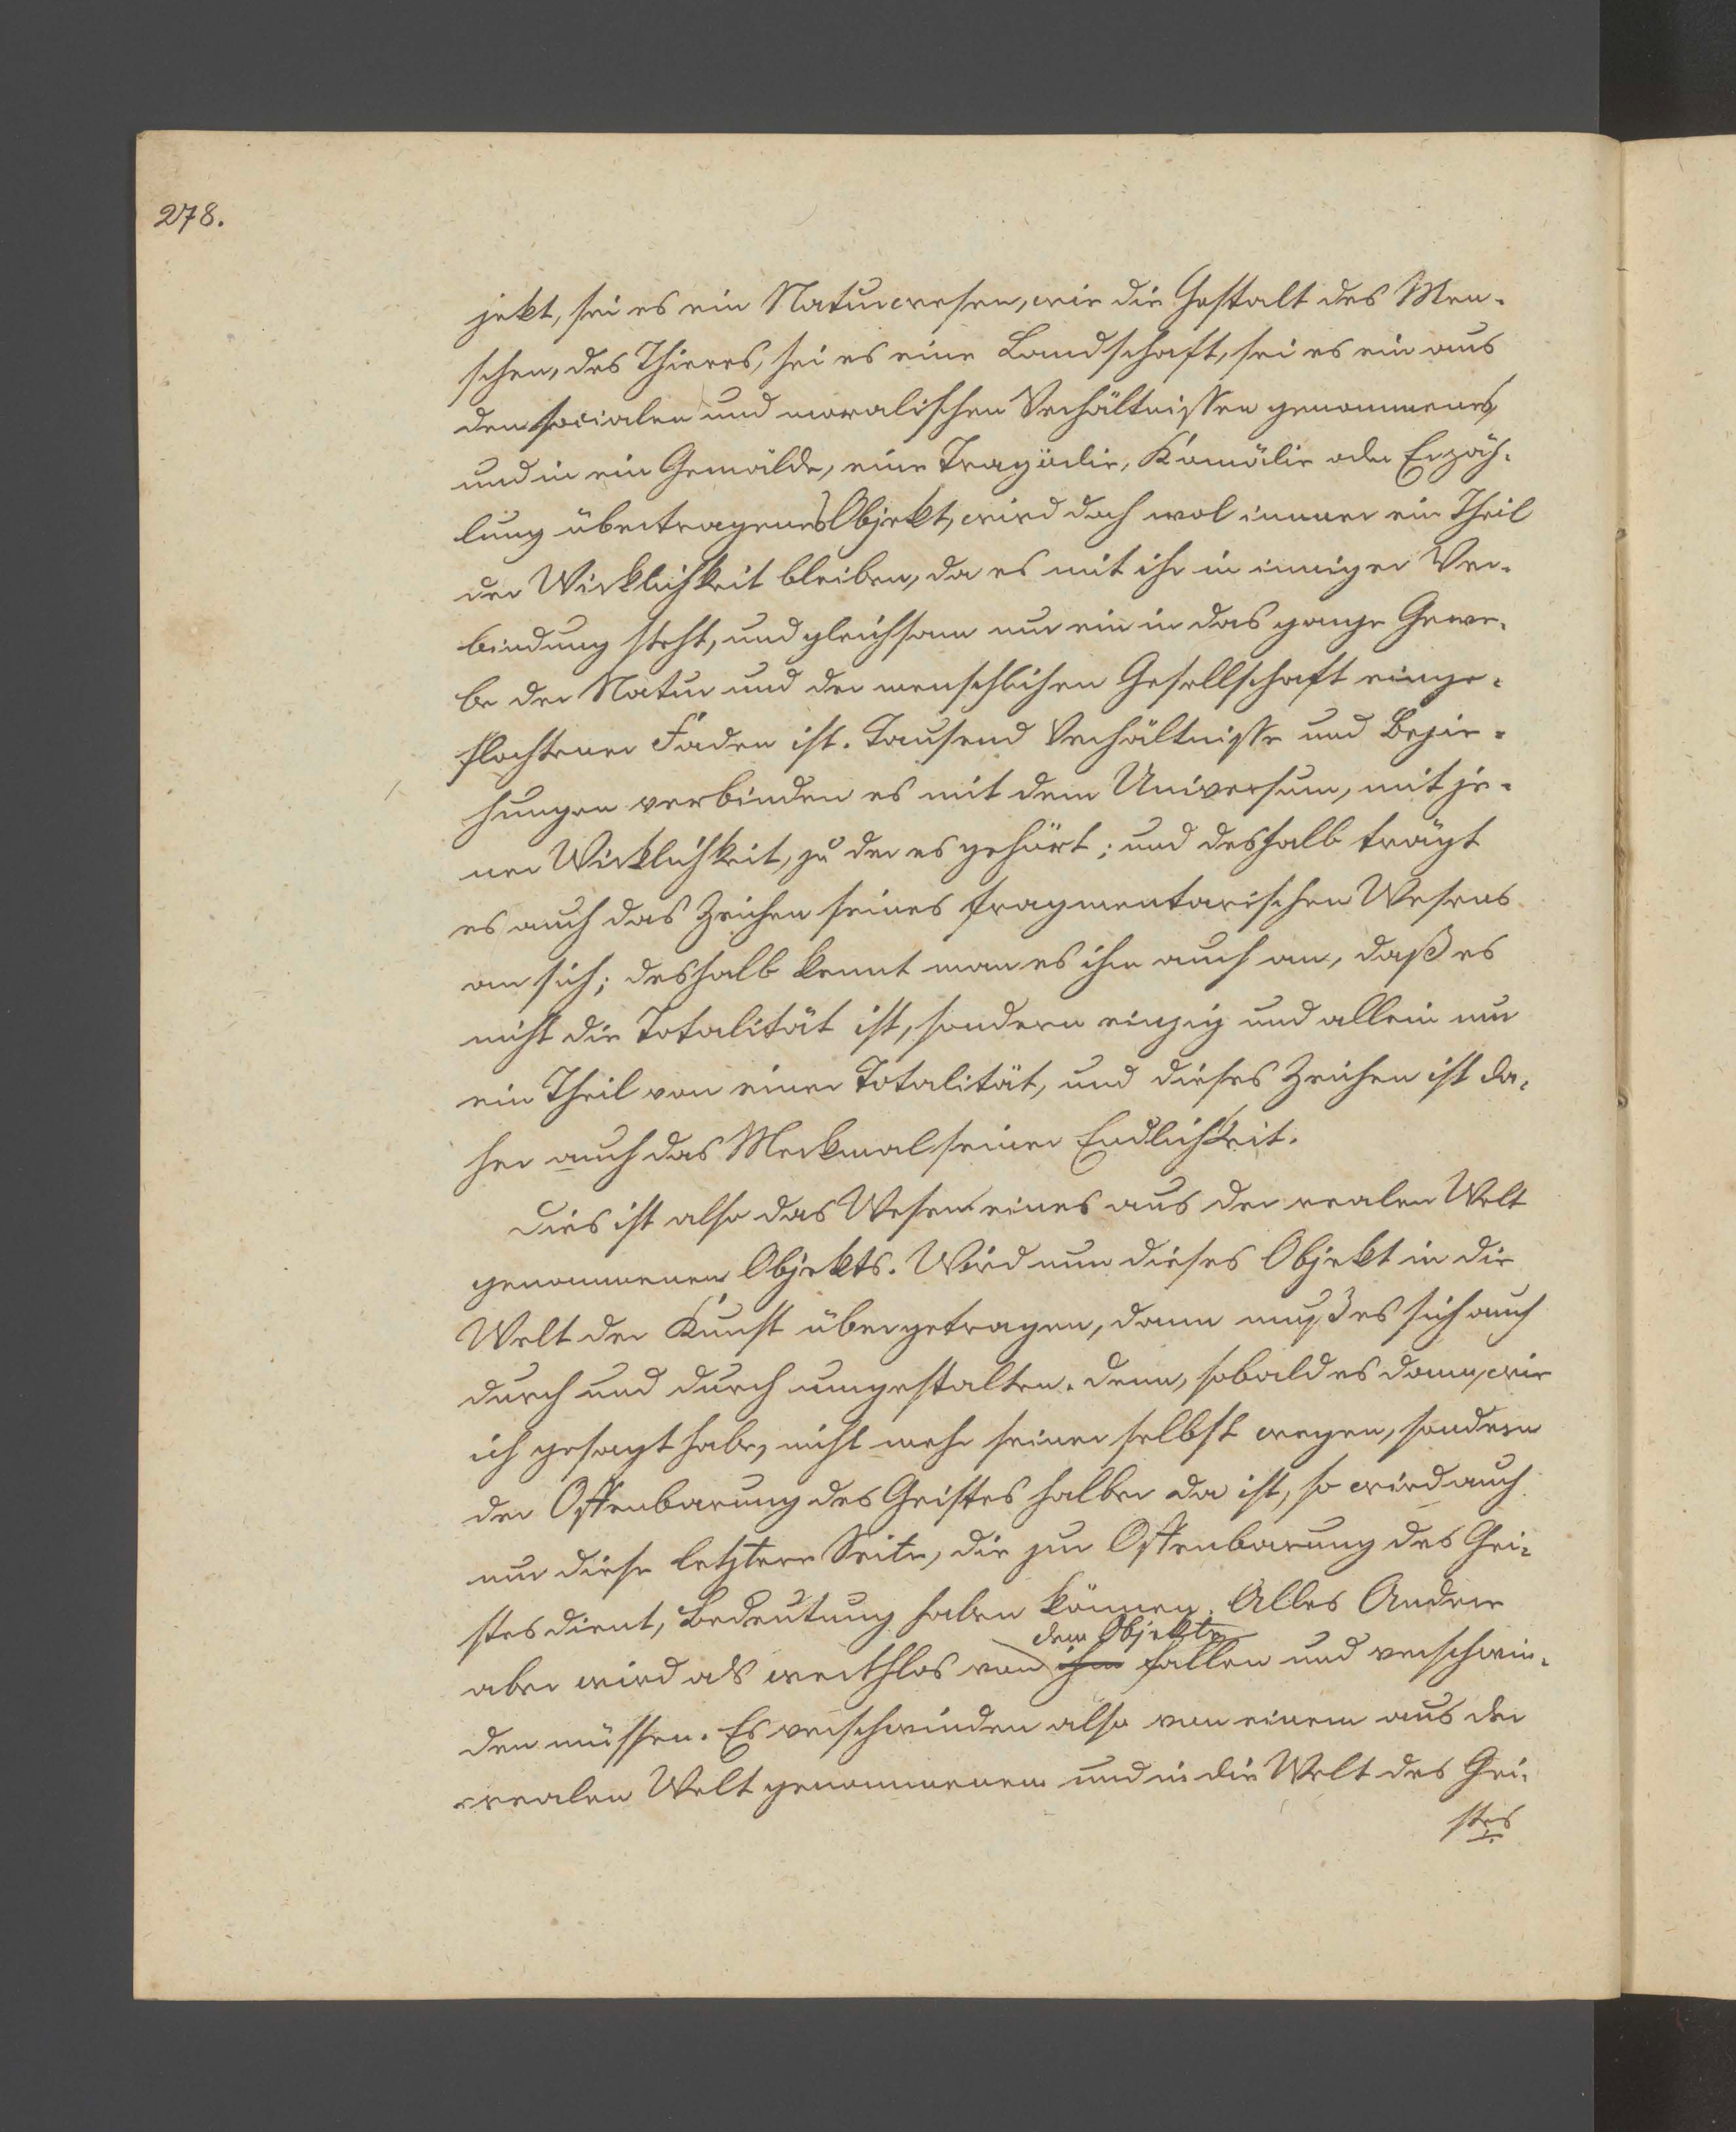 278.
jekt, sei es ein Naturwesen, wie die Gestalt des Men-
schen, des Thieres, sei es eine Landschaft, sei es ein aus
den socialen und moralischen Verhältnissen genommenes,
und in ein Gemälde, eine Tragödie, Komödie oder Erzäh-
lung übertragenes Objekt, wird doch wol immer ein Theil
der Wirklichkeit bleiben, da es mit ihr in inniger Ver-
bindung steht, und gleichsam nur ein in das ganze Gewe-
be der Natur und der menschlichen Gesellschaft einge-
flochtener Faden ist. Tausend Verhältnisse und Bezie-
hungen verbinden es mit dem Universum, mit je-
ner Wirklichkeit, zu der es gehört; und deshalb trägt
es auch das Zeichen seines fragmentarischen Wesens
an sich; deshalb kennt man es ihm auch an, daß es
nicht die Totalität ist, sondern einzig und allein nur
ein Theil von einer Totalität, und dieses Zeichen ist da-
her auch das Merkmal seiner Endlichkeit.
Dies ist also das Wesen eines aus der realen Welt
genommenen Objekts. Wird nun dieses Objekt in die
Welt der Kunst übergetragen, dann muß es sich auch
durch und durch umgestalten. Denn, sobald es dann, wie
ich gesagt habe, nicht mehr seiner selbst wegen, sondern
der Offenbarung des Geistes halber da ist, so wird auch
nur diese letztere Seite, die zur Offenbarung des Gei-
stes dient, Bedeutung haben können. Alles Andere
dem Objekte
aber wird als werthlos von ihm fallen und verschwin-
den müssen. Es verschwinden also von einem aus der
realen Welt genommenen und in die Welt des Gei-
stes